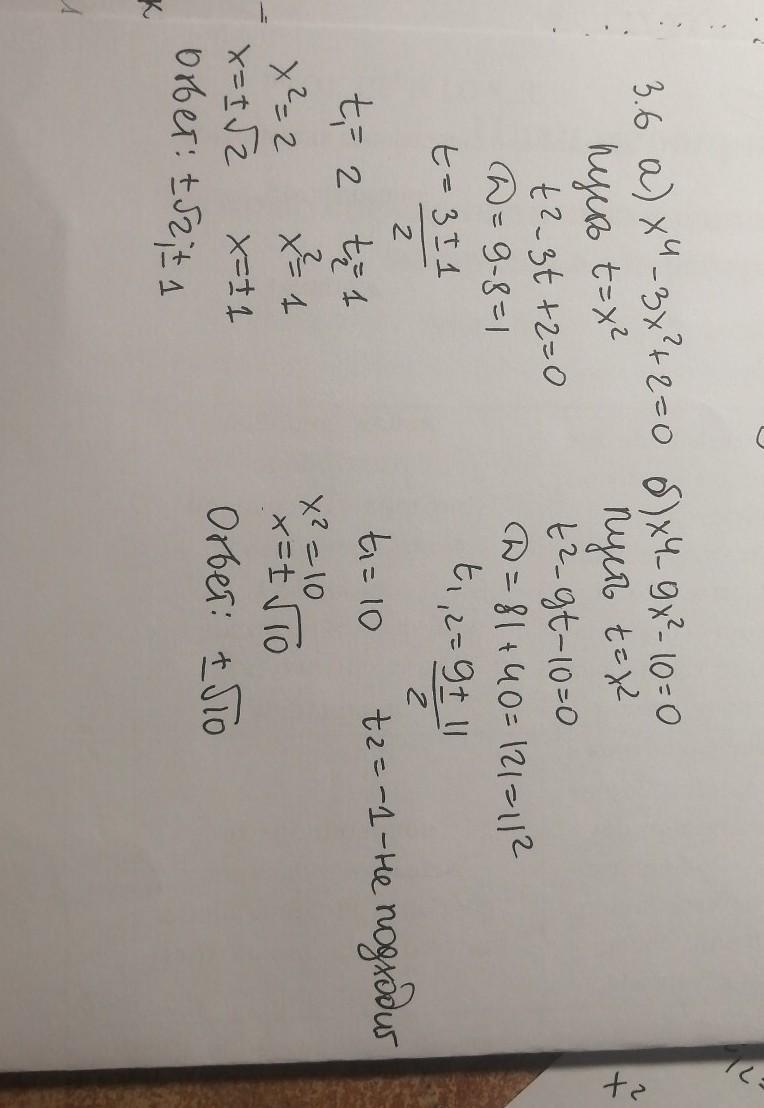 3.6 а) x⁴ - 3x² + 2 = 0
Пусть t = x²
t² - 3t + 2 = 0
D = 9 - 8 = 1
t = (3 ± 1)/2
t₁ = 2 t₂ = 1
x² = 2 x² = 1
x = ±√2 x = ±1
Ответ: ±√2; ±1
б) x⁴ - 9x² - 10 = 0
Пусть t = x²
t² - 9t - 10 = 0
D = 81 + 40 = 121 = 11²
t₁,₂ = (9 ± 11)/2
t₁ = 10 t₂ = -1 - не подходит
x² = 10
x = ±√10
Ответ: ±√10